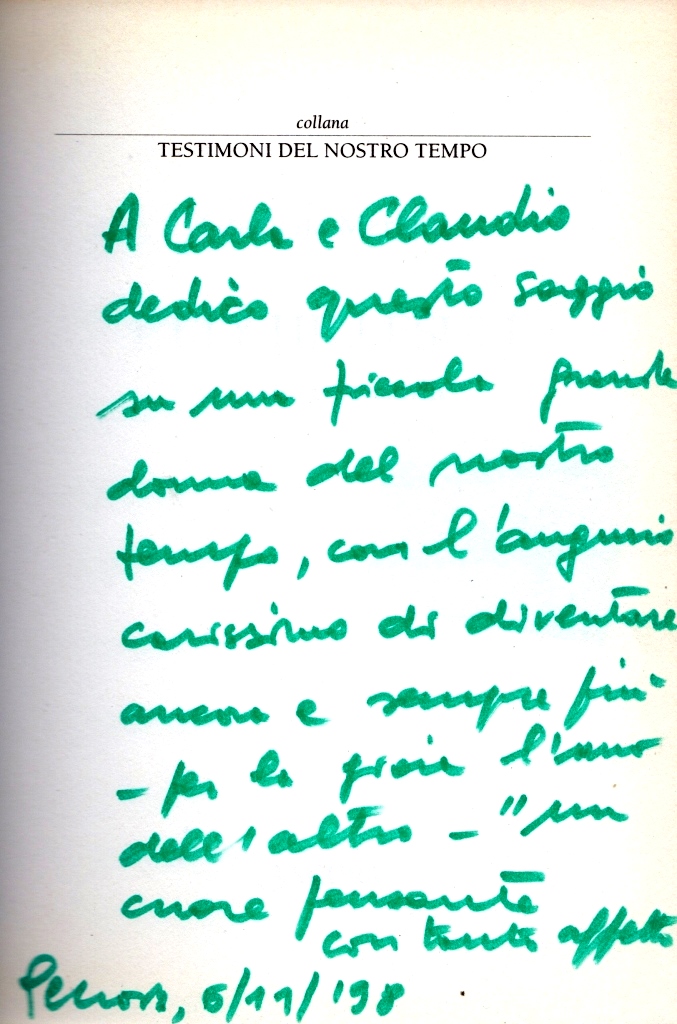 collana
TESTIMONI DEL NOSTRO TEMPO
A Carla e Claudio
dedico questo saggio
su una piccola grande
donna del nostro
tempo, con l'augurio
carissimo di diventare
ancora e sempre più
- per la gioia l'uno
dell'altro - "un
cuore pensante
con tanto affetto
Genova, 6/11/'98